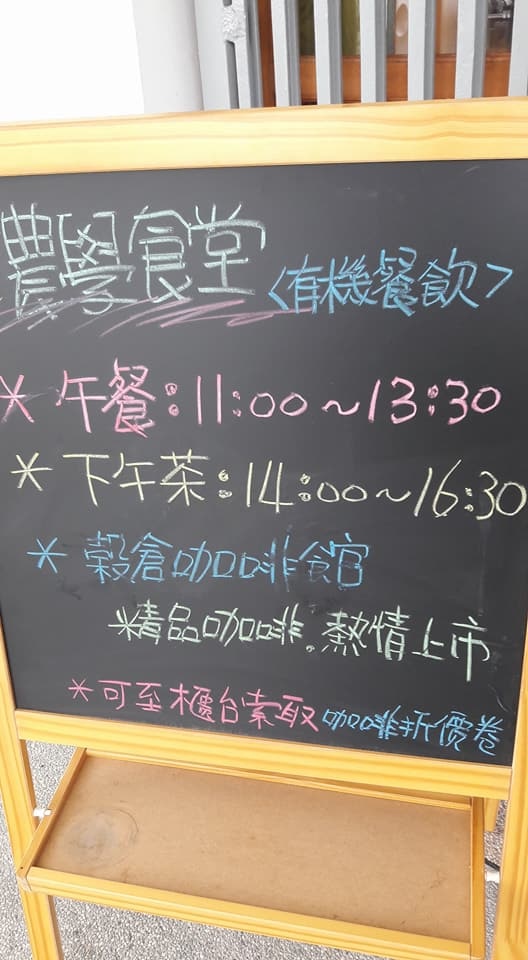 農學食堂 <有機餐飲>
* 午餐:11:00~13:30
* 下午茶:14:00~16:30
* 穀倉咖啡館
*精品咖啡.熱情上市
*可至櫃台索取咖啡折價卷